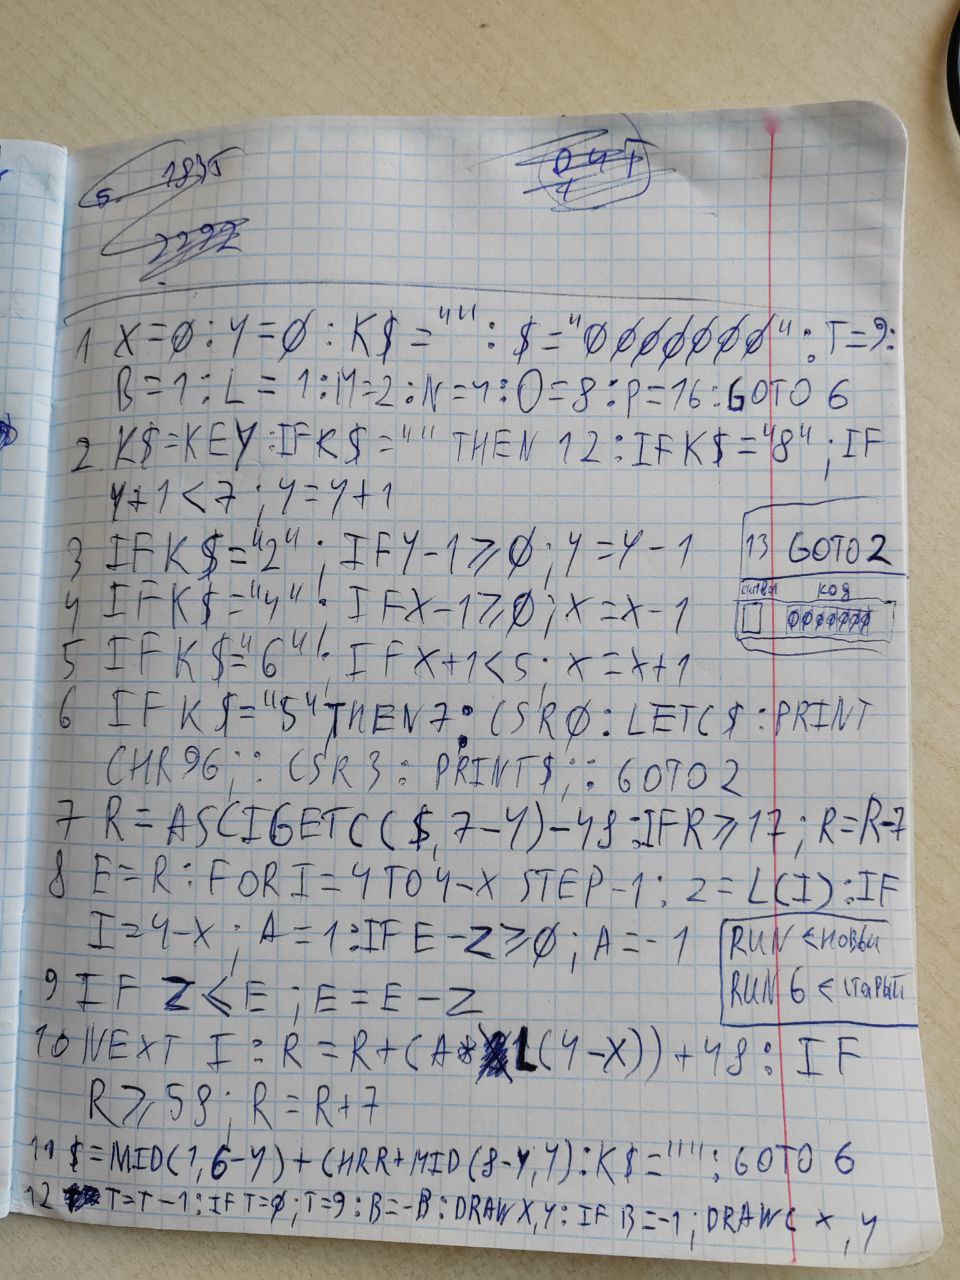 1 X=0:Y=0:K$="":$="0000000":T=9:
B=1:L=1:M=2:N=4:O=8:P=16:GOTO 6
2 K$=KEY:IFK$="" THEN 12:IFK$="8";IF
Y+1<7;Y=Y+1
3 IFK$="2";IFY-1≥0;Y=Y-1
4 IFK$="4";IFX-1≥0;X=X-1
5 IFK$="6";IFX+1<5;X=X+1
13 GOTO2
символ код
0000000
6 IF K$="5"THEN7:CSR0:LETC$:PRINT
CHR96;:CSR3:PRINT$;:GOTO2
7 R=ASCIGETC($,7-Y)-48:IFR≥17;R=R-7
8 E=R:FORI=4TO4-X STEP-1:Z=L(I):IF
I=4-X;A=1:IFE-Z≥0;A=-1
RUN <новый
RUN 6 <старый
9 IF Z≤E;E=E-Z
10 NEXT I:R=R+(A*L(4-X))+48:IF
R≥58;R=R+7
11 $=MID(1,6-Y)+CHRR+MID(8-Y,Y):K$="":GOTO 6
12 T=T-1:IFT=0;T=9:B=-B:DRAWX,Y:IFB=-1;DRAWC X,Y